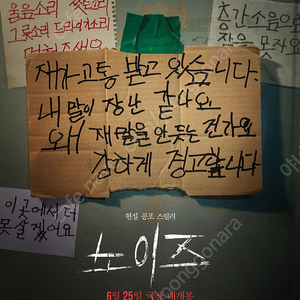 음음소리
층간소음으로
잠을 못자요
제가 고통 받고 있습니다.
내 말이 장난 같나요
왜 제 말을 안 듣는 건가요
강하게 경고합니다
이곳에서 더
못 살겠어요
현실 공포 스릴러
노이즈
6월 25일 극장 대개봉